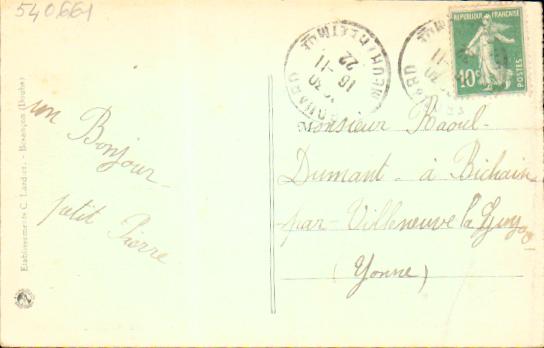 540661
un Bonjour
petit Pierre
Etablissements C. Lardier. - Besançon (Doubs)
16 -11
22
REPUBLIQUE FRANÇAISE
10c
POSTES
Monsieur Raoul
Dumant - à Bichain
par - Villeneuve la Guyard
(Yonne)